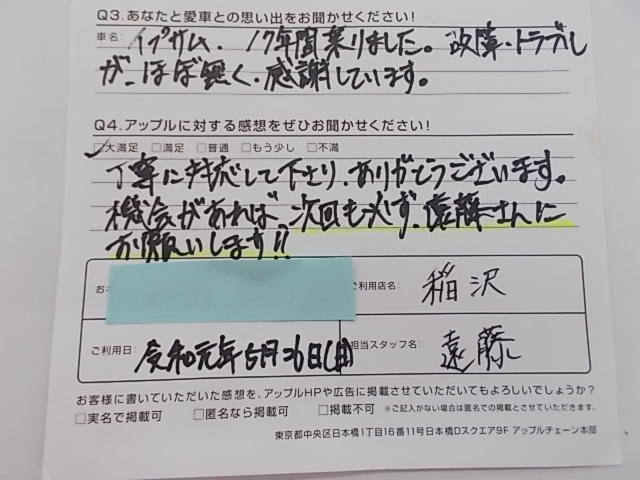 Q3.あなたと愛車との思い出をお聞かせください!
車名: イプサム、17年間乗りました。故障・トラブル
が、ほぼ無く、感謝しています。
Q4.アップルに対する感想をぜひお聞かせください!
□大満足 □満足 □普通 □もう少し □不満
丁寧に対応して下さり、ありがとうございます。
機会があれば、次回も必ず、遠藤さんに
お願いします!!
お
ご利用店名: 稲沢
ご利用日: 令和元年5月26日(日)
担当スタッフ名: 遠藤
お客様に書いていただいた感想を、アップルHPや広告に掲載させていただいてもよろしいでしょうか?
□実名で掲載可 □匿名なら掲載可 □掲載不可 ※ご記入がない場合は匿名での掲載とさせていただきます。
東京都中央区日本橋1丁目16番11号日本橋Dスクエア9F アップルチェーン本部